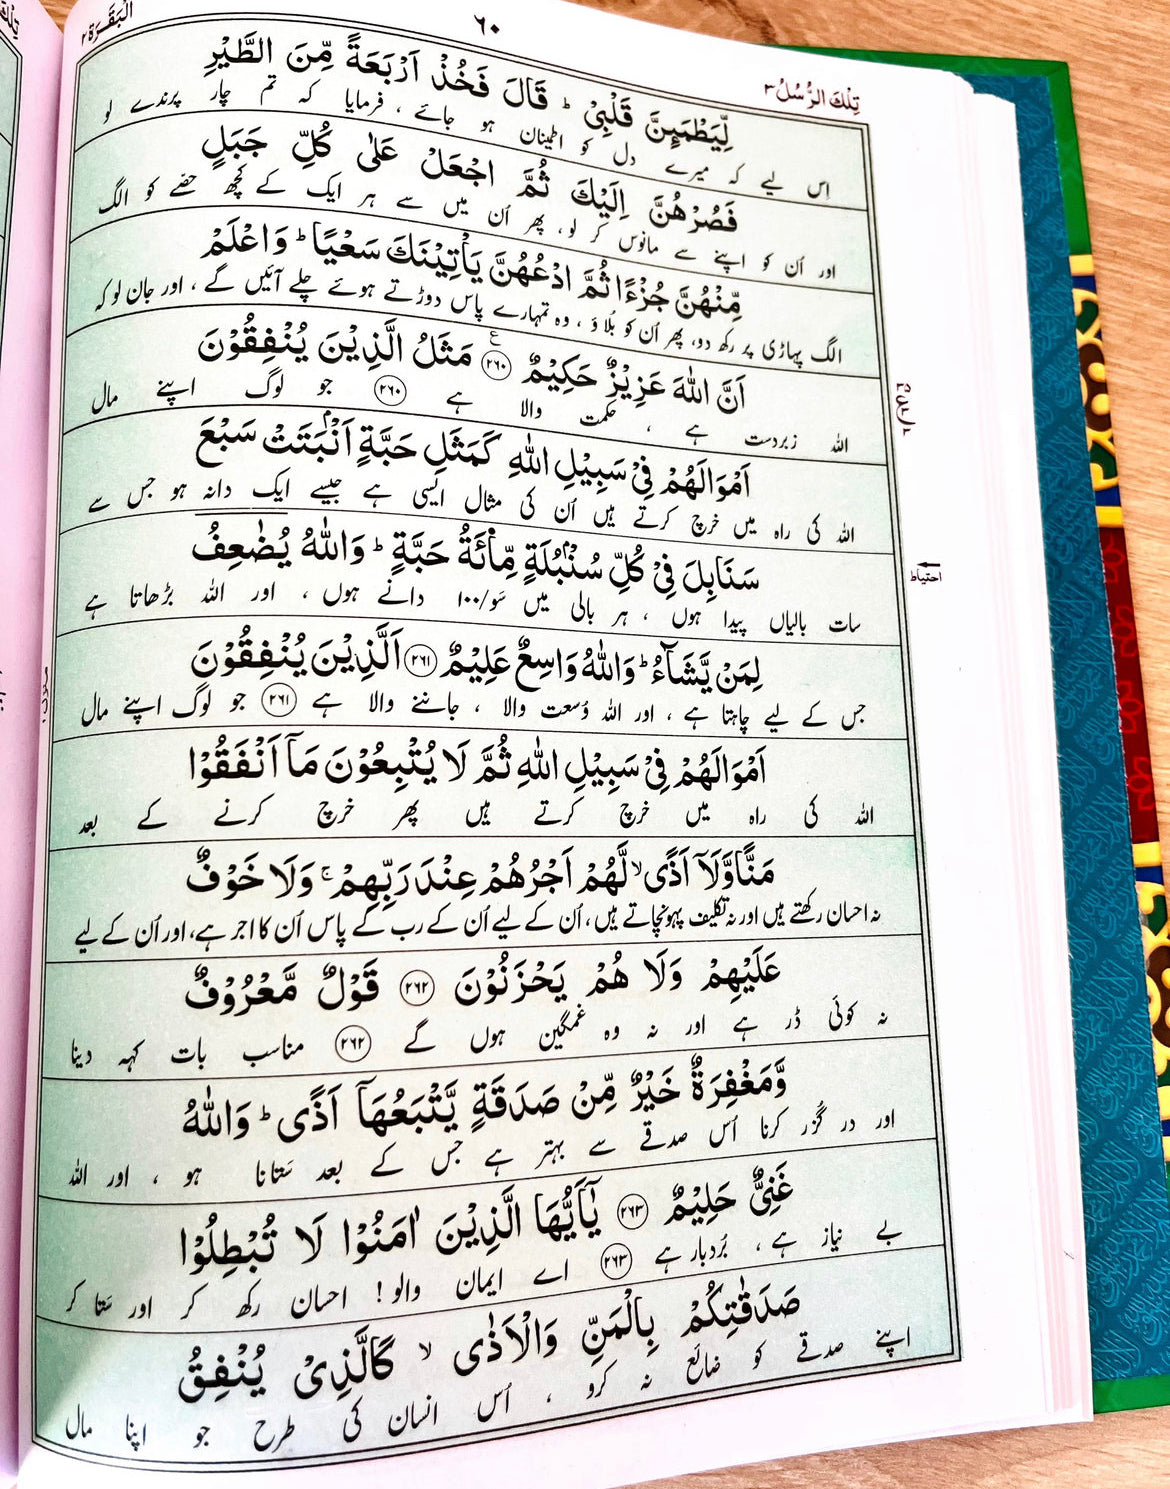 اَلْبَقَرَة ٢
٦٠
تِلْكَ الرُّسُلُ ٣
لِّيَطْمَئِنَّ قَلْبِيْ ؕ قَالَ فَخُذْ اَرْبَعَةً مِّنَ الطَّيْرِ
اِس لیے کہ میرے دل کو اطمینان ہو جائے ، فرمایا کہ تم چار پرندے لو
فَصُرْهُنَّ اِلَيْكَ ثُمَّ اجْعَلْ عَلٰى كُلِّ جَبَلٍ
اور اُن کو اپنے سے مانوس کر لو، پھر اُن میں سے ہر ایک کے کچھ حصّے کو الگ
مِّنْهُنَّ جُزْءًا ثُمَّ ادْعُهُنَّ يَاْتِيْنَكَ سَعْيًا ؕ وَاعْلَمْ
الگ پہاڑی پر رکھ دو، پھر اُن کو بُلاؤ ، وہ تمہارے پاس دوڑتے ہوئے چلے آئیں گے ، اور جان لو کہ
اَنَّ اللّٰهَ عَزِيْزٌ حَكِيْمٌ ﴿٢٦٠﴾ ع مَثَلُ الَّذِيْنَ يُنْفِقُوْنَ
اللہ زبردست ہے ، حکمت والا ہے ﴿٢٦٠﴾ جو لوگ اپنے مال
اَمْوَالَهُمْ فِيْ سَبِيْلِ اللّٰهِ كَمَثَلِ حَبَّةٍ اَنْۢبَتَتْ سَبْعَ
اللہ کی راہ میں خرچ کرتے ہیں اُن کی مثال ایسی ہے جیسے ایک دانہ ہو جس سے
سَنَابِلَ فِيْ كُلِّ سُنْۢبُلَةٍ مِّائَةُ حَبَّةٍ ؕ وَاللّٰهُ يُضٰعِفُ
احتیاط
سات بالیاں پیدا ہوں ، ہر بالی میں سَو/۱۰۰ دانے ہوں ، اور اللہ بڑھاتا ہے
لِمَنْ يَّشَآءُ ؕ وَاللّٰهُ وَاسِعٌ عَلِيْمٌ ﴿٢٦١﴾ اَلَّذِيْنَ يُنْفِقُوْنَ
جس کے لیے چاہتا ہے ، اور اللہ وُسعت والا ، جاننے والا ہے ﴿٢٦١﴾ جو لوگ اپنے مال
اَمْوَالَهُمْ فِيْ سَبِيْلِ اللّٰهِ ثُمَّ لَا يُتْبِعُوْنَ مَآ اَنْفَقُوْا
اللہ کی راہ میں خرچ کرتے ہیں پھر خرچ کرنے کے بعد
مَنًّا وَّلَآ اَذًى ۙ لَّهُمْ اَجْرُهُمْ عِنْدَ رَبِّهِمْ ۚ وَلَا خَوْفٌ
نہ احسان رکھتے ہیں اور نہ تکلیف پہونچاتے ہیں ، اُن کے لیے اُن کے رب کے پاس اُن کا اجر ہے، اور اُن کے لیے
عَلَيْهِمْ وَلَا هُمْ يَحْزَنُوْنَ ﴿٢٦٢﴾ قَوْلٌ مَّعْرُوْفٌ
نہ کوئی ڈر ہے اور نہ وہ غمگین ہوں گے ﴿٢٦٢﴾ مناسب بات کہہ دینا
وَّمَغْفِرَةٌ خَيْرٌ مِّنْ صَدَقَةٍ يَّتْبَعُهَآ اَذًى ؕ وَاللّٰهُ
اور در گُزر کرنا اُس صدقے سے بہتر ہے جس کے بعد ستانا ہو ، اور اللہ
غَنِيٌّ حَلِيْمٌ ﴿٢٦٣﴾ يٰٓاَيُّهَا الَّذِيْنَ اٰمَنُوْا لَا تُبْطِلُوْا
بے نیاز ہے ، بُردبار ہے ﴿٢٦٣﴾ اے ایمان والو! احسان رکھ کر اور ستا کر
صَدَقٰتِكُمْ بِالْمَنِّ وَالْاَذٰى ۙ كَالَّذِيْ يُنْفِقُ
اپنے صدقے کو ضائع نہ کرو ، اُس انسان کی طرح جو اپنا مال